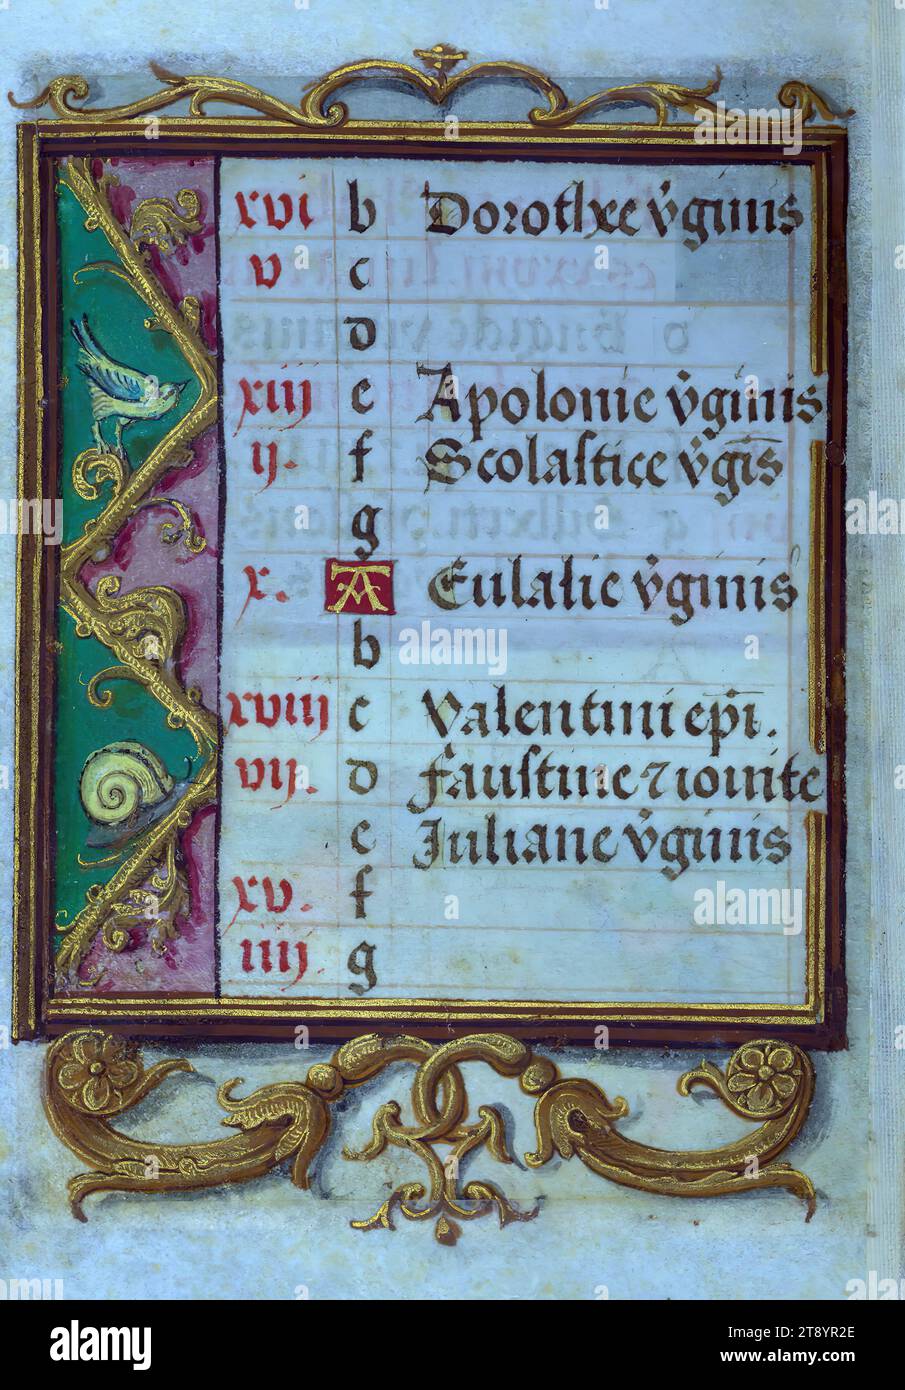 xvi b Dorothee v̄ginis
v c
d
xiij e Apolonie v̄ginis
ij. f Scolastice v̄gīs
g
x. A Eulalie v̄ginis
b
xviij c Valentini ep̄i.
vij. d Faustine ⁊ iouite
e Juliane v̄ginis
xv. f
iiij. g
alamy
Image ID: 2T8YR2E
www.alamy.com